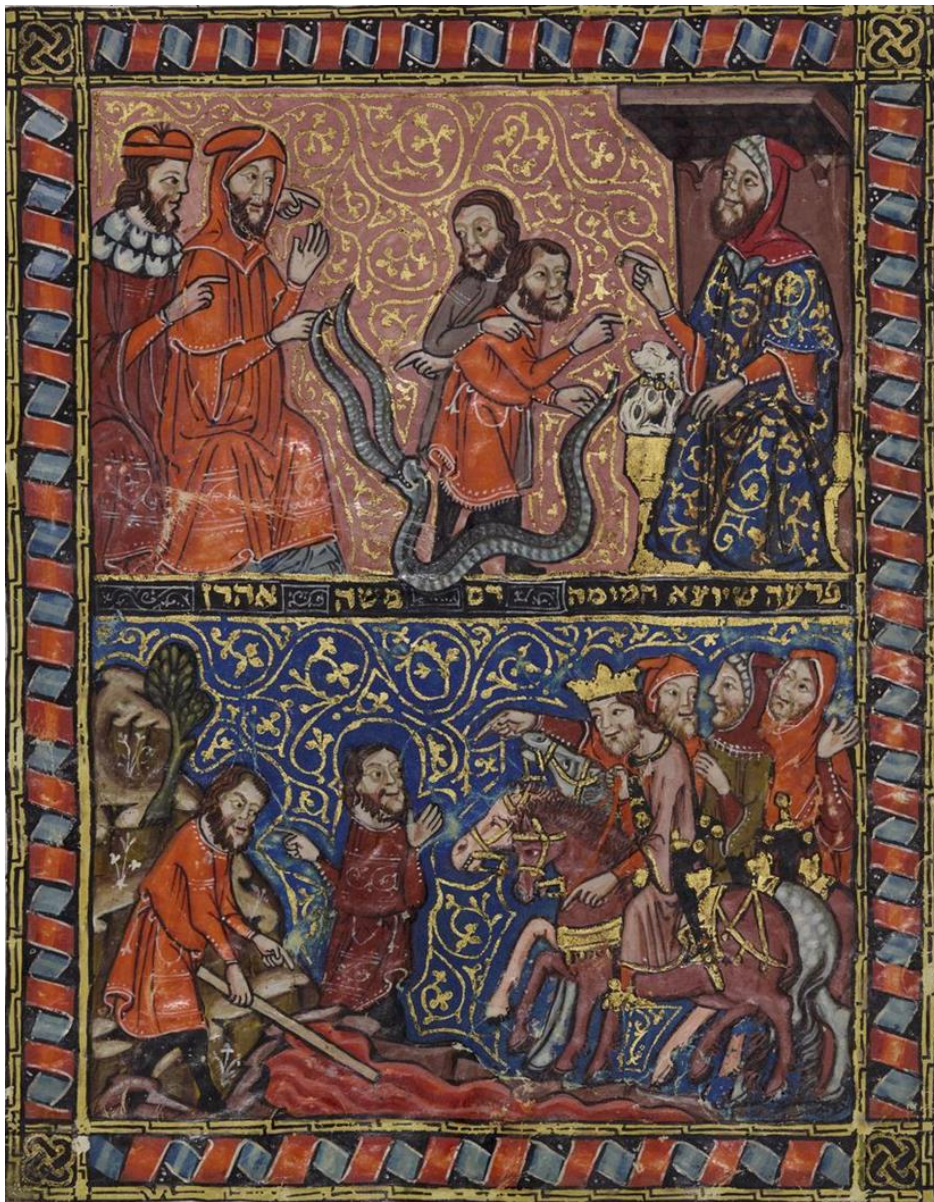 פרעה שיוצא המימה דם משה אהרן